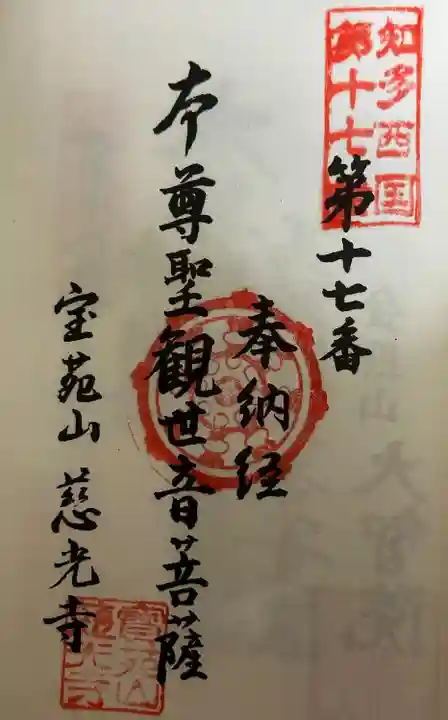 知多西国
第十七番
第十七番
奉納経
本尊聖観世音菩薩
宝苑山 慈光寺